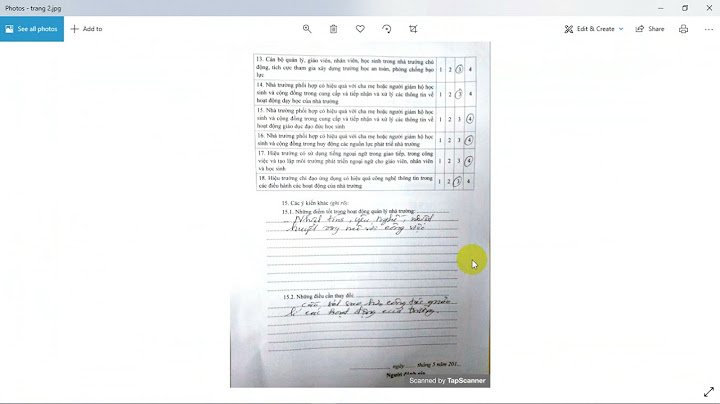 Photos - trang 2.jpg
See all photos
Add to
Edit & Create
Share
13. Cán bộ quản lý, giáo viên, nhân viên, học sinh trong nhà trường chủ
động, tích cực tham gia xây dựng trường học an toàn, phòng chống bạo
lực
1 2 3 4
14. Nhà trường phối hợp có hiệu quả với cha mẹ hoặc người giám hộ học
sinh và cộng đồng trong cung cấp và tiếp nhận và xử lý các thông tin về
hoạt động dạy học của nhà trường
1 2 3 4
15. Nhà trường phối hợp có hiệu quả với cha mẹ hoặc người giám hộ học
sinh và cộng đồng trong cung cấp và tiếp nhận và xử lý các thông tin về
hoạt động giáo dục đạo đức học sinh
1 2 3 4
16. Nhà trường phối hợp có hiệu quả với cha mẹ hoặc người giám hộ học
sinh và cộng đồng trong huy động các nguồn lực phát triể nhà trường
1 2 3 4
17. Hiệu trưởng có sử dụng tiếng ngoại ngữ trong giao tiếp, trong công
việc và tạo lập môi trường phát triển ngoại ngữ cho giáo viên, nhân viên
và học sinh
1 2 3 4
18. Hiệu trưởng chỉ đạo ứng dụng có hiệu quả công nghệ thông tin trong
các điều hành các hoạt động của nhà trường
1 2 3 4
15. Các ý kiến khác (ghi rõ):
15.1. Những điểm tốt trong hoạt động quản lý nhà trường:
- Nhiệt tình, yêu nghề, nhiệt
huyết say mê với công việc
15.2. Những điều cần thay đổi:
công tác quản
lí các hoạt động của trường.
ngày tháng 5 năm 201
Người đánh giá
Scanned by TapScanner